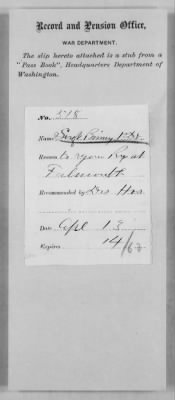 Record and Pension Office,
WAR DEPARTMENT.
The slip hereto attached is a stub from a
"Pass Book", Headquarters Department of
Washington.
No. 518
Name
Reason To join Regt at
Falmouth
Recommended by Des Hos
Date Apl 13
Expires 14/63